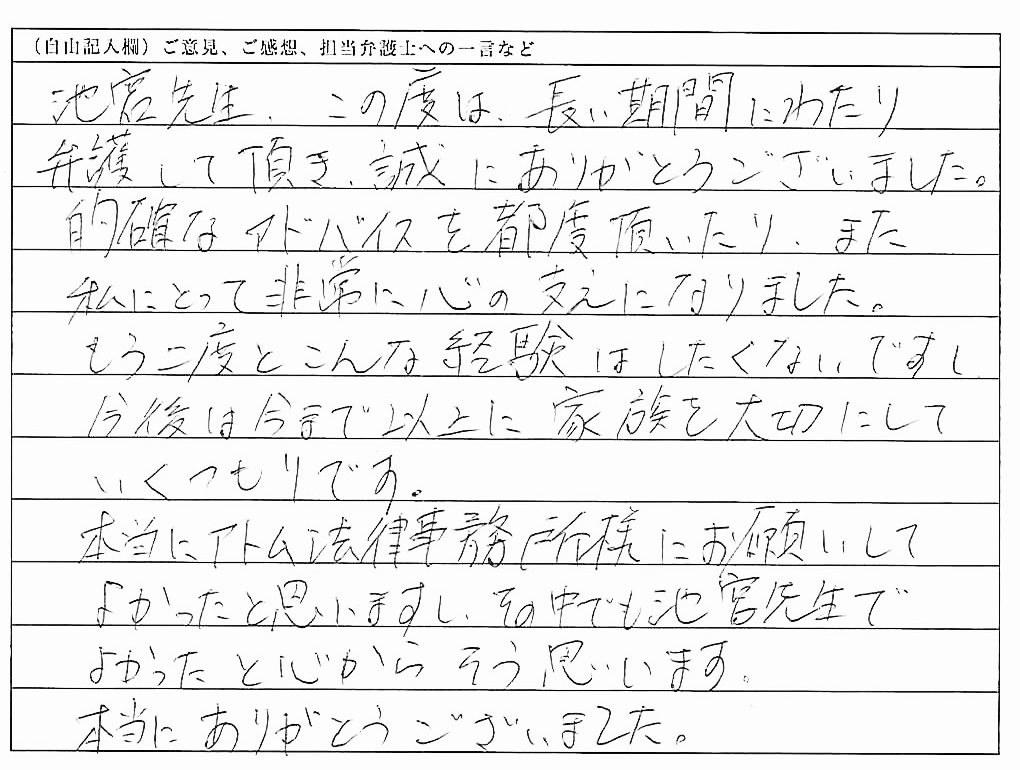 (自由記入欄)ご意見、ご感想、担当弁護士への一言など
池宮先生、この度は、長い期間にわたり
弁護して頂き、誠にありがとうございました。
的確なアドバイスを都度頂いたり、また
私にとって非常に心の支えになりました。
もう二度とこんな経験はしたくないですし
今後は今まで以上に家族を大切にして
いくつもりです。
本当にアトム法律事務所様にお願いして
よかったと思いますし、その中でも池宮先生で
よかったと心からそう思います。
本当にありがとうございました。